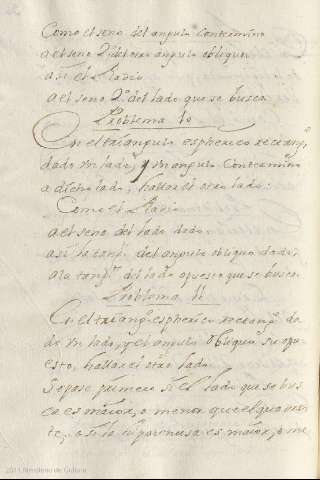 Como el seno del angulo contermino
a el seno 2º del otro angulo obliquo
asi el Radio
a el seno 2º del lado que se busca
Problema 10
En el triangulo espherico rectang.º
dado un lado, y un angulo conterminº
a dicho lado, hallar el otro lado:
Como el Radio
a el seno del lado dado
asi la tang.te del angulo obliquo dado,
a la tang.te del lado opuesto que se busca
Problema 11
En el triang.º espherico rectang.º da
do un lado, y el angulo obliquo su opu
esto, hallar el otro lado
Sepase primero si el lado que se bus
ca es maior, o menor que el quadran
te, o si la hipotenusa es maior, o me
2011 Ministerio de Cultura